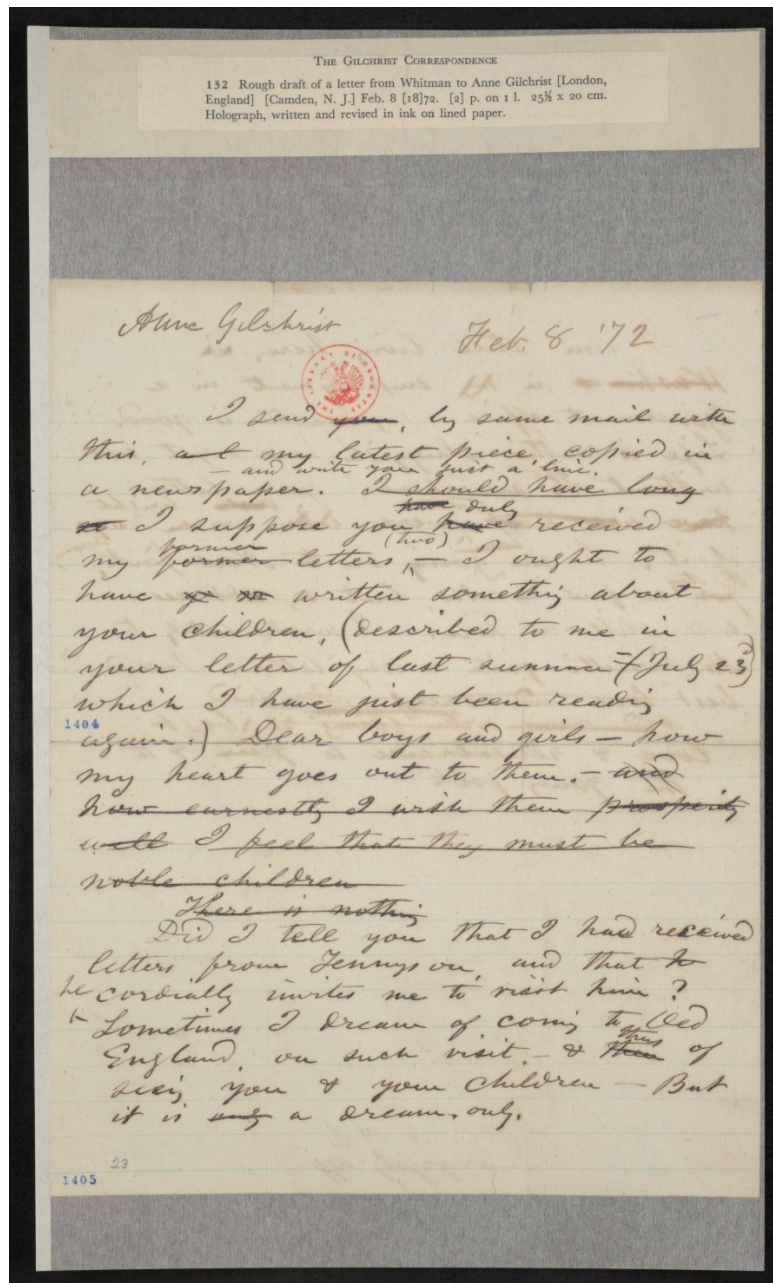 THE GILCHRIST CORRESPONDENCE
132 Rough draft of a letter from Whitman to Anne Gilchrist [London,
England] [Camden, N. J.] Feb. 8 [18]72. [2] p. on 1 l. 25½ x 20 cm.
Holograph, written and revised in ink on lined paper.
Anne Gilchrist
Feb. 8 '72
I send you, by same mail with
this, my latest piece, copied in
– and write you just a line.
a newspaper. I should have long
have duly
I suppose you have received
former (two)
my former letters, – I ought to
have written something about
your children, (described to me in
your letter of last summer – (July 23)
which I have just been reading
1404
again.) Dear boys and girls – how
my heart goes out to them. – and
how earnestly I wish them prosperity
well I feel that they must be
noble children
There is nothing
Did I tell you that I had received
letters from Tennyson, and that h
he cordially invites me to visit him?
Sometimes I dream of coming to Old
thus
England, on such visit, – & then of
seeing you & your children – But
it is only a dream. only.
23
1405